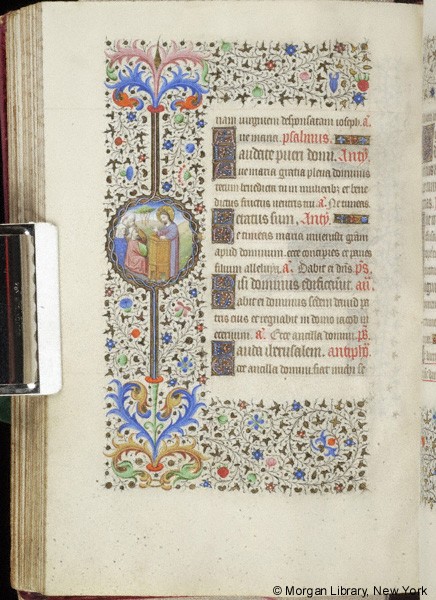 nam virginem desponsatam ioseph. a.
Aue maria. psalmus.
Laudate pueri dominũ. Anty.
Aue maria gratia plena dominus
tecum benedicta tu in mulieribꝫ et bene
dictus fructus ventris tui. a. Ne timeas
Letatus sum. Anty.
Ne timeas maria inuenisti grãm
apud dominum ecce concipies et paries
filium alleluya. a. Dabit ei dñs ps
Nisi dominus edificauerit. añ.
Dabit ei dominus sedem dauid pa
tris eius et regnabit in domo iacob in
eternum. a. Ecce ancilla domini. ps.
Lauda iherusalem. antipho.
Ecce ancilla domini fiat michi se
© Morgan Library, New York